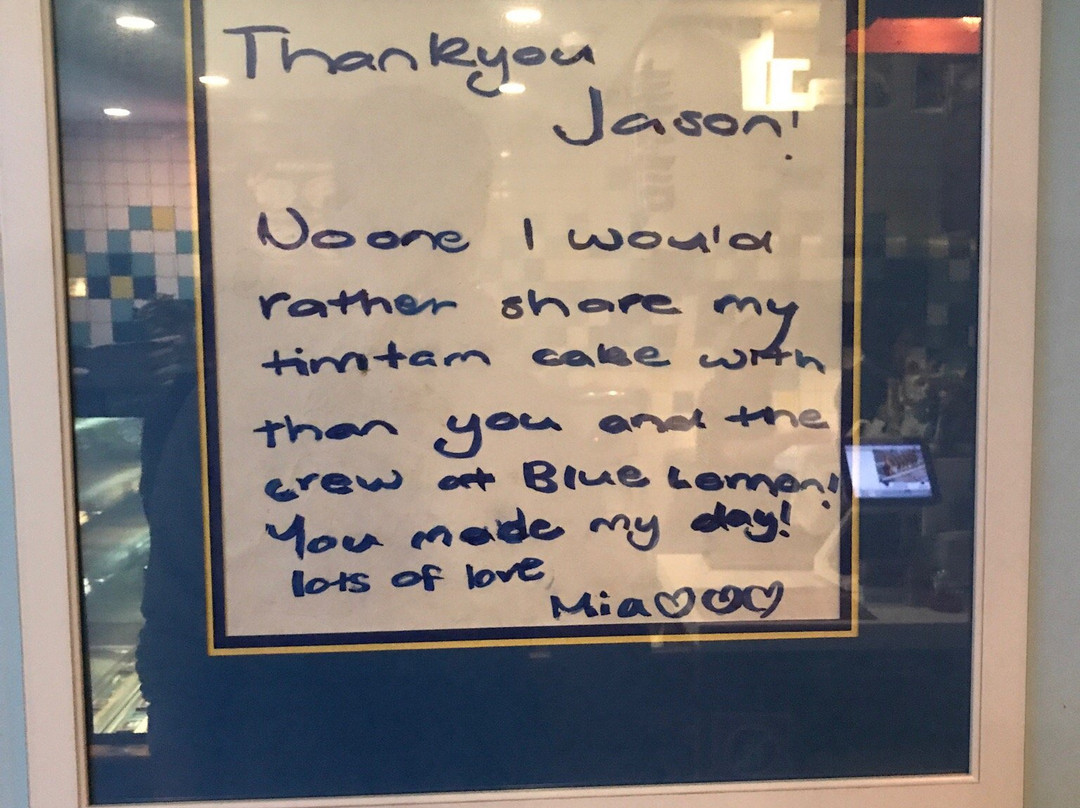 Thankyou
Jason!
No one I would
rather share my
timtam cake with
than you and the
crew at Blue Lemon!
You made my day!
lots of love
Mia♡♡♡